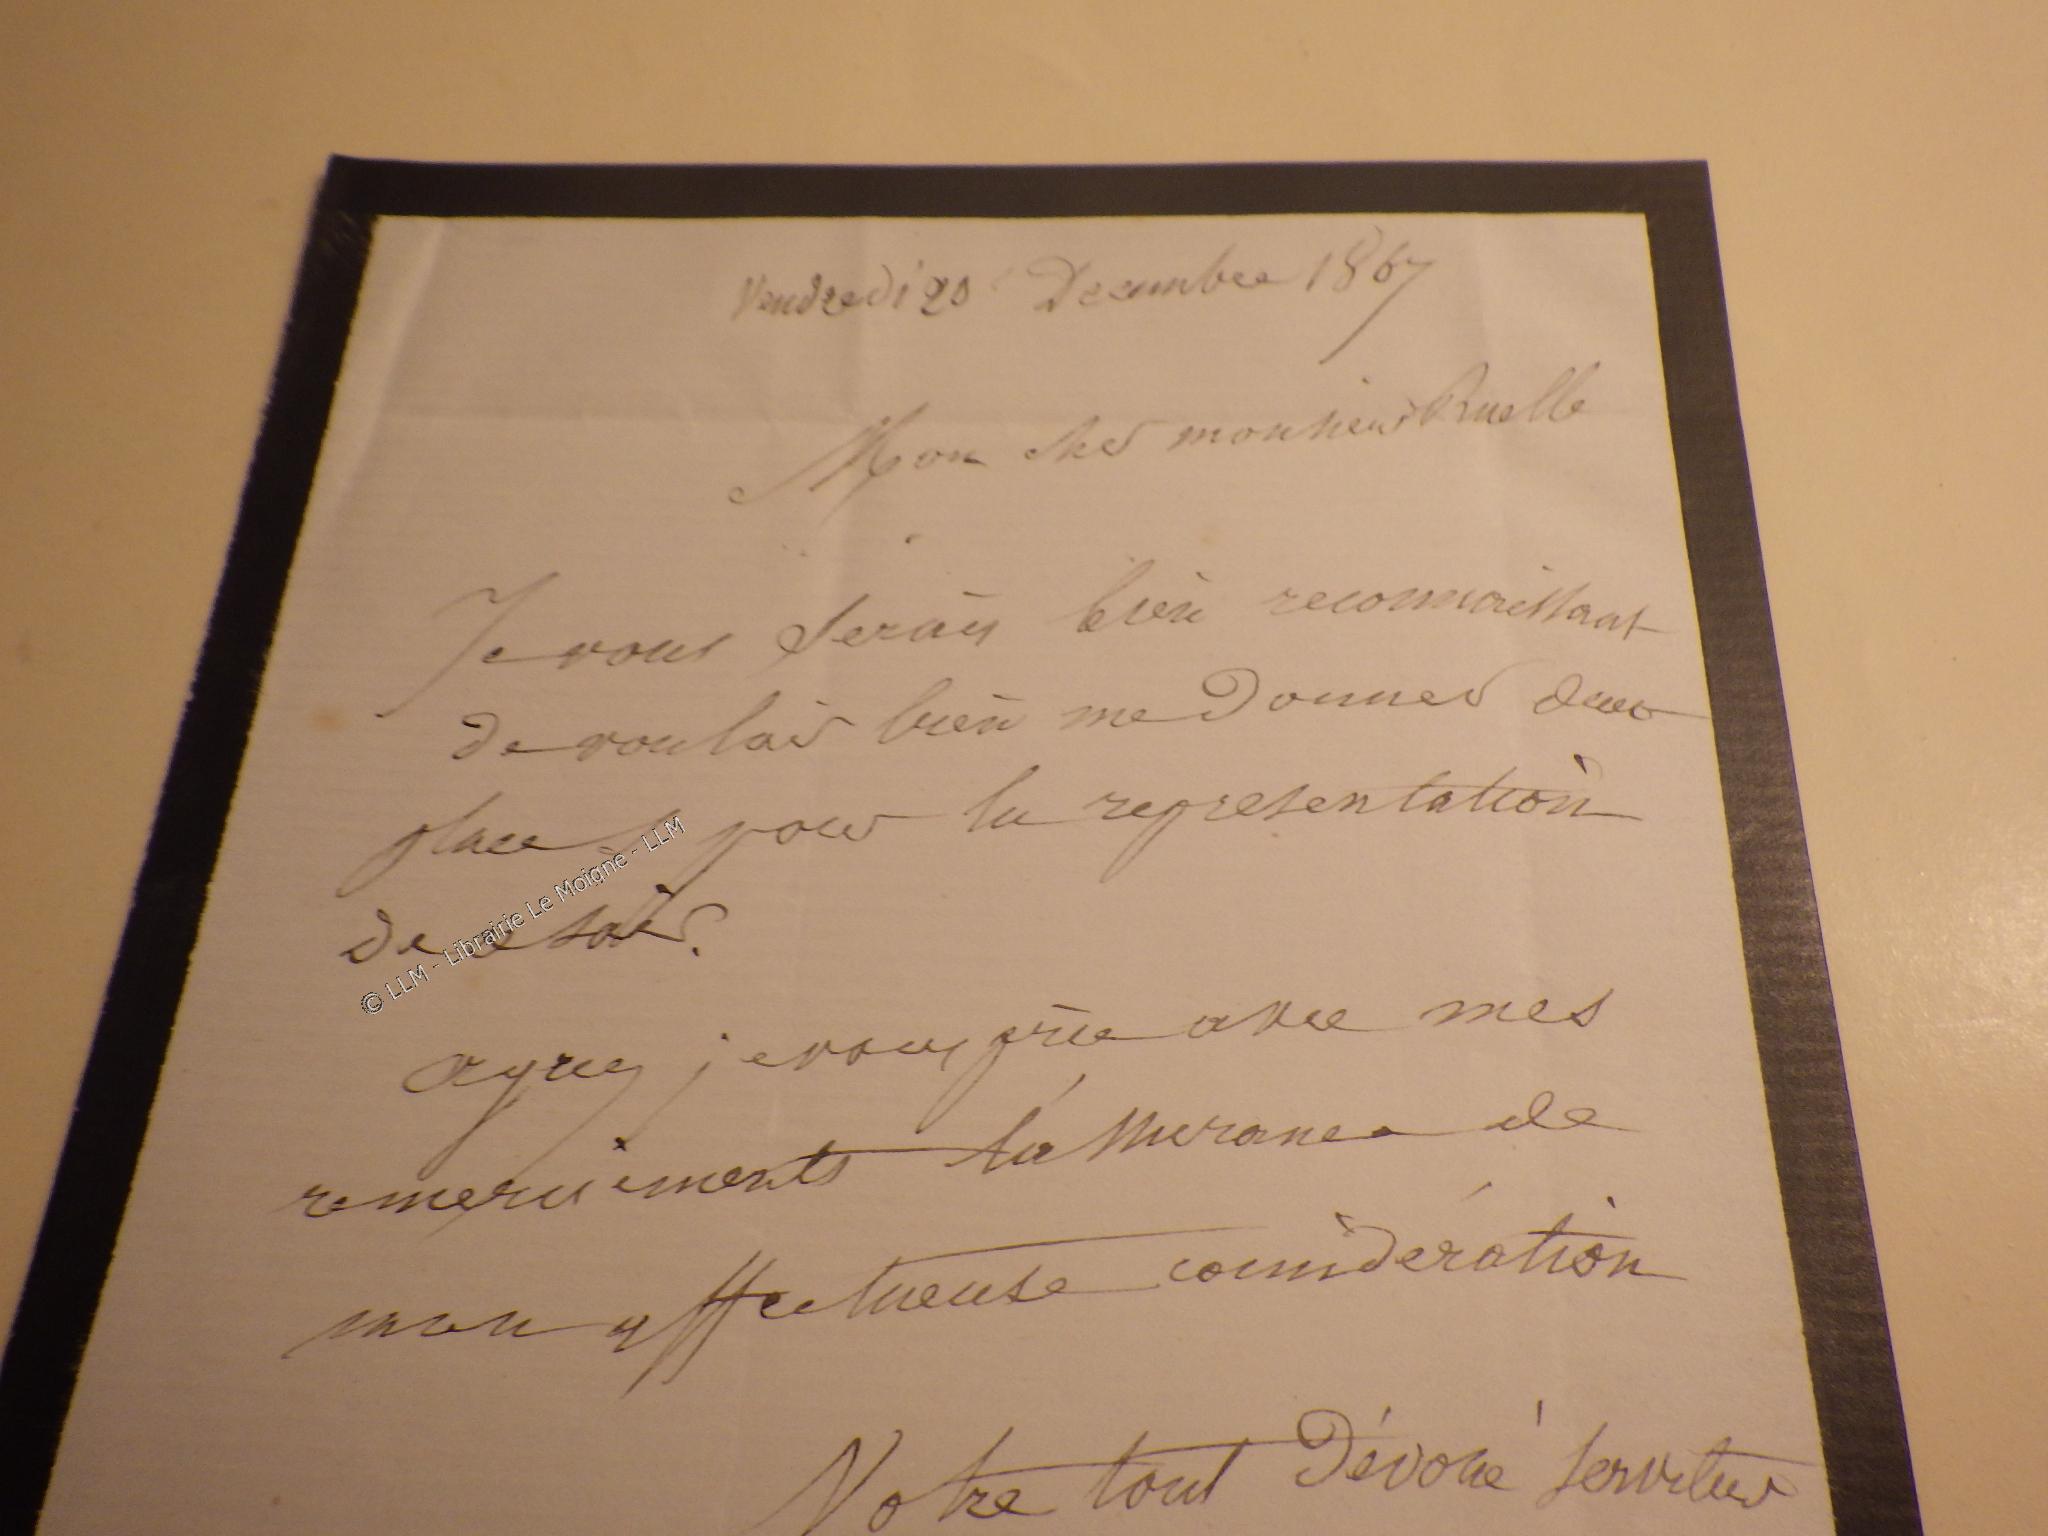 Vendredi 20 Decembre 1867
Mon cher monsieur Ruelle
Je vous serais bien reconnaissant
de vouloir bien me donner deux
places pour la representation
de ce soir.
agreez je vous prie avec mes
remerciements l'assurance de
mon affectueuse considération
Votre tout Dévoué serviteur
© LLM - Librairie Le Moigne - LLM